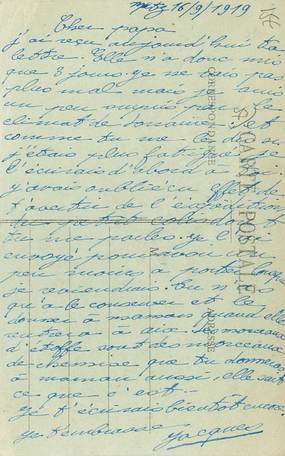 Metz 16/9/1919
Cher papa
j'ai reçu aujourd'hui ta
lettre. Elle n'a donc mis
que 3 jours. Je ne suis pas
plus mal mais je suis
un peu ennuyé par le
climat de Lorraine. Et
comme tu me le dis
j'étais plus fatigué je
l'écrirais d'abord à
j'avais oublié en effet de
t'avertir de l'expédition
du petit colis dont
tu me parles. Je l'ai
envoyé pour avoir un
peu moins à porter lorsque
je reviendrais. Tu n'as
qu'à le conserver et le
donner à maman quand elle
rentrera à Aix. Les morceaux
d'étoffe sont des morceaux
de chemise que tu donneras
à maman aussi, elle sait
ce que c'est.
Je t'écrirais bientôt encore.
Je t'embrasse Jacques
CARTE POSTALE
CORRESPONDANCE
ADRESSE